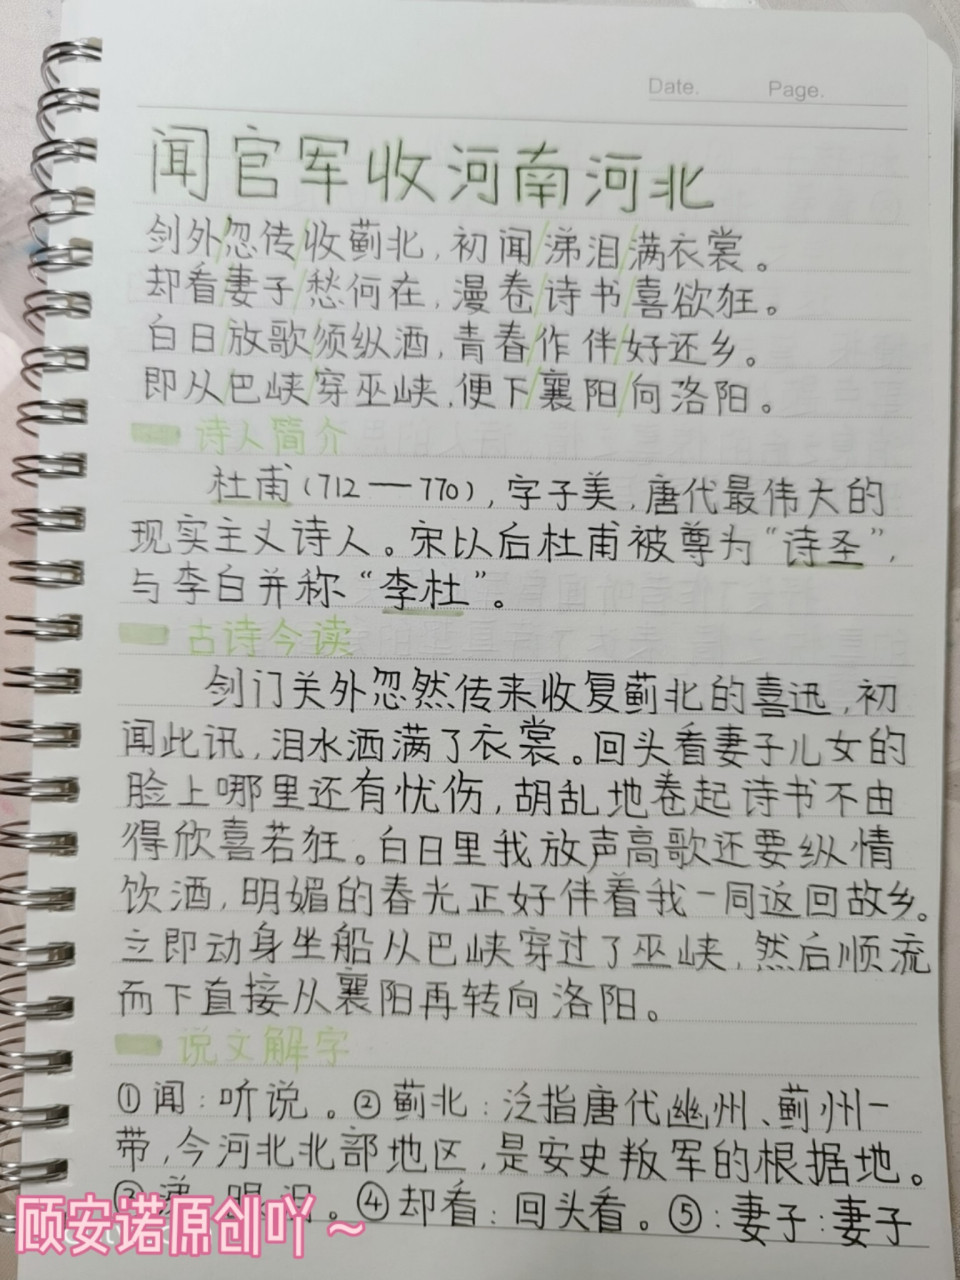 Date. Page.
闻官军收河南河北
剑外/忽传/收蓟北，初闻/涕泪/满衣裳。
却看/妻子/愁何在，漫卷/诗书/喜欲狂。
白日/放歌/须纵酒，青春/作伴/好还乡。
即从/巴峡/穿巫峡，便下/襄阳/向洛阳。
诗人简介
杜甫（712—770），字子美，唐代最伟大的
现实主义诗人。宋以后杜甫被尊为“诗圣”，
与李白并称“李杜”。
古诗今读
剑门关外忽然传来收复蓟北的喜迅，初
闻此讯，泪水洒满了衣裳。回头看妻子儿女的
脸上哪里还有忧伤，胡乱地卷起诗书不由
得欣喜若狂。白日里我放声高歌还要纵情
饮酒，明媚的春光正好伴着我一同返回故乡。
立即动身坐船从巴峡穿过了巫峡，然后顺流
而下直接从襄阳再转向洛阳。
说文解字
①闻：听说。②蓟北：泛指唐代幽州、蓟州一
带，今河北北部地区，是安史叛军的根据地。
③涕：眼泪。④却看：回头看。⑤：妻子：妻子
顾安诺原创吖～